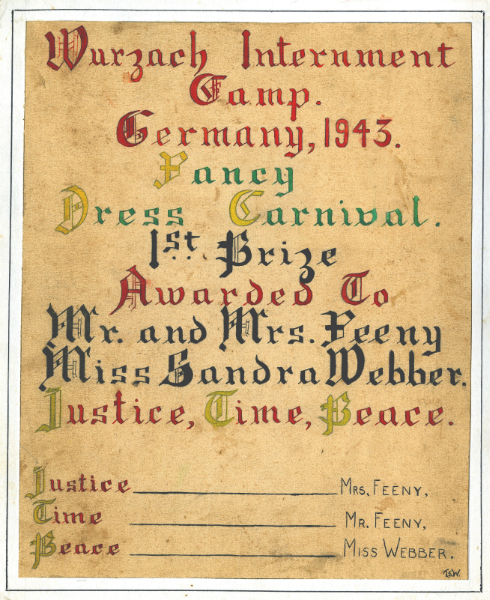 Wurzach Internment
Camp.
Germany, 1943.
Fancy
Dress Carnival.
1st Prize
Awarded To
Mr. and Mrs. Feeny
Miss Sandra Webber.
Justice, Time, Peace.
Justice Mrs. FEENY,
Time Mr. FEENY,
Peace MISS WEBBER.